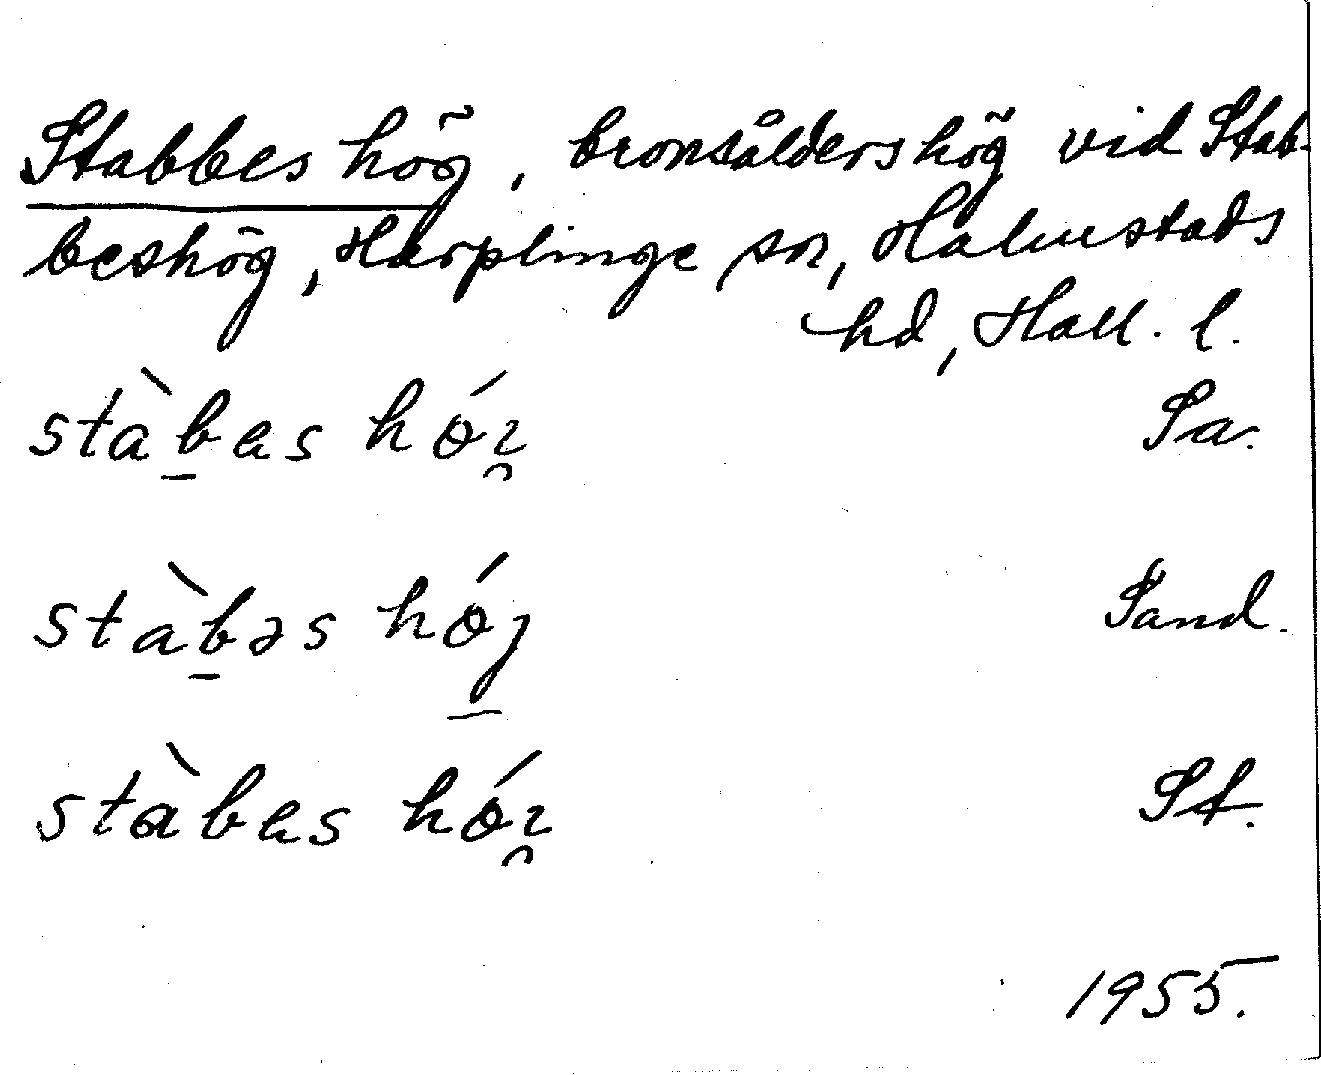 Stabbes hög, bronsåldershög vid Stab-
beshög, Harplinge sn, Halmstads
hd, Hall. l.
stàb̠as hǿı̯ Sa.
stàb̠əs hǿj̠ Sand.
stàbas hǿı̯ St.
1955.